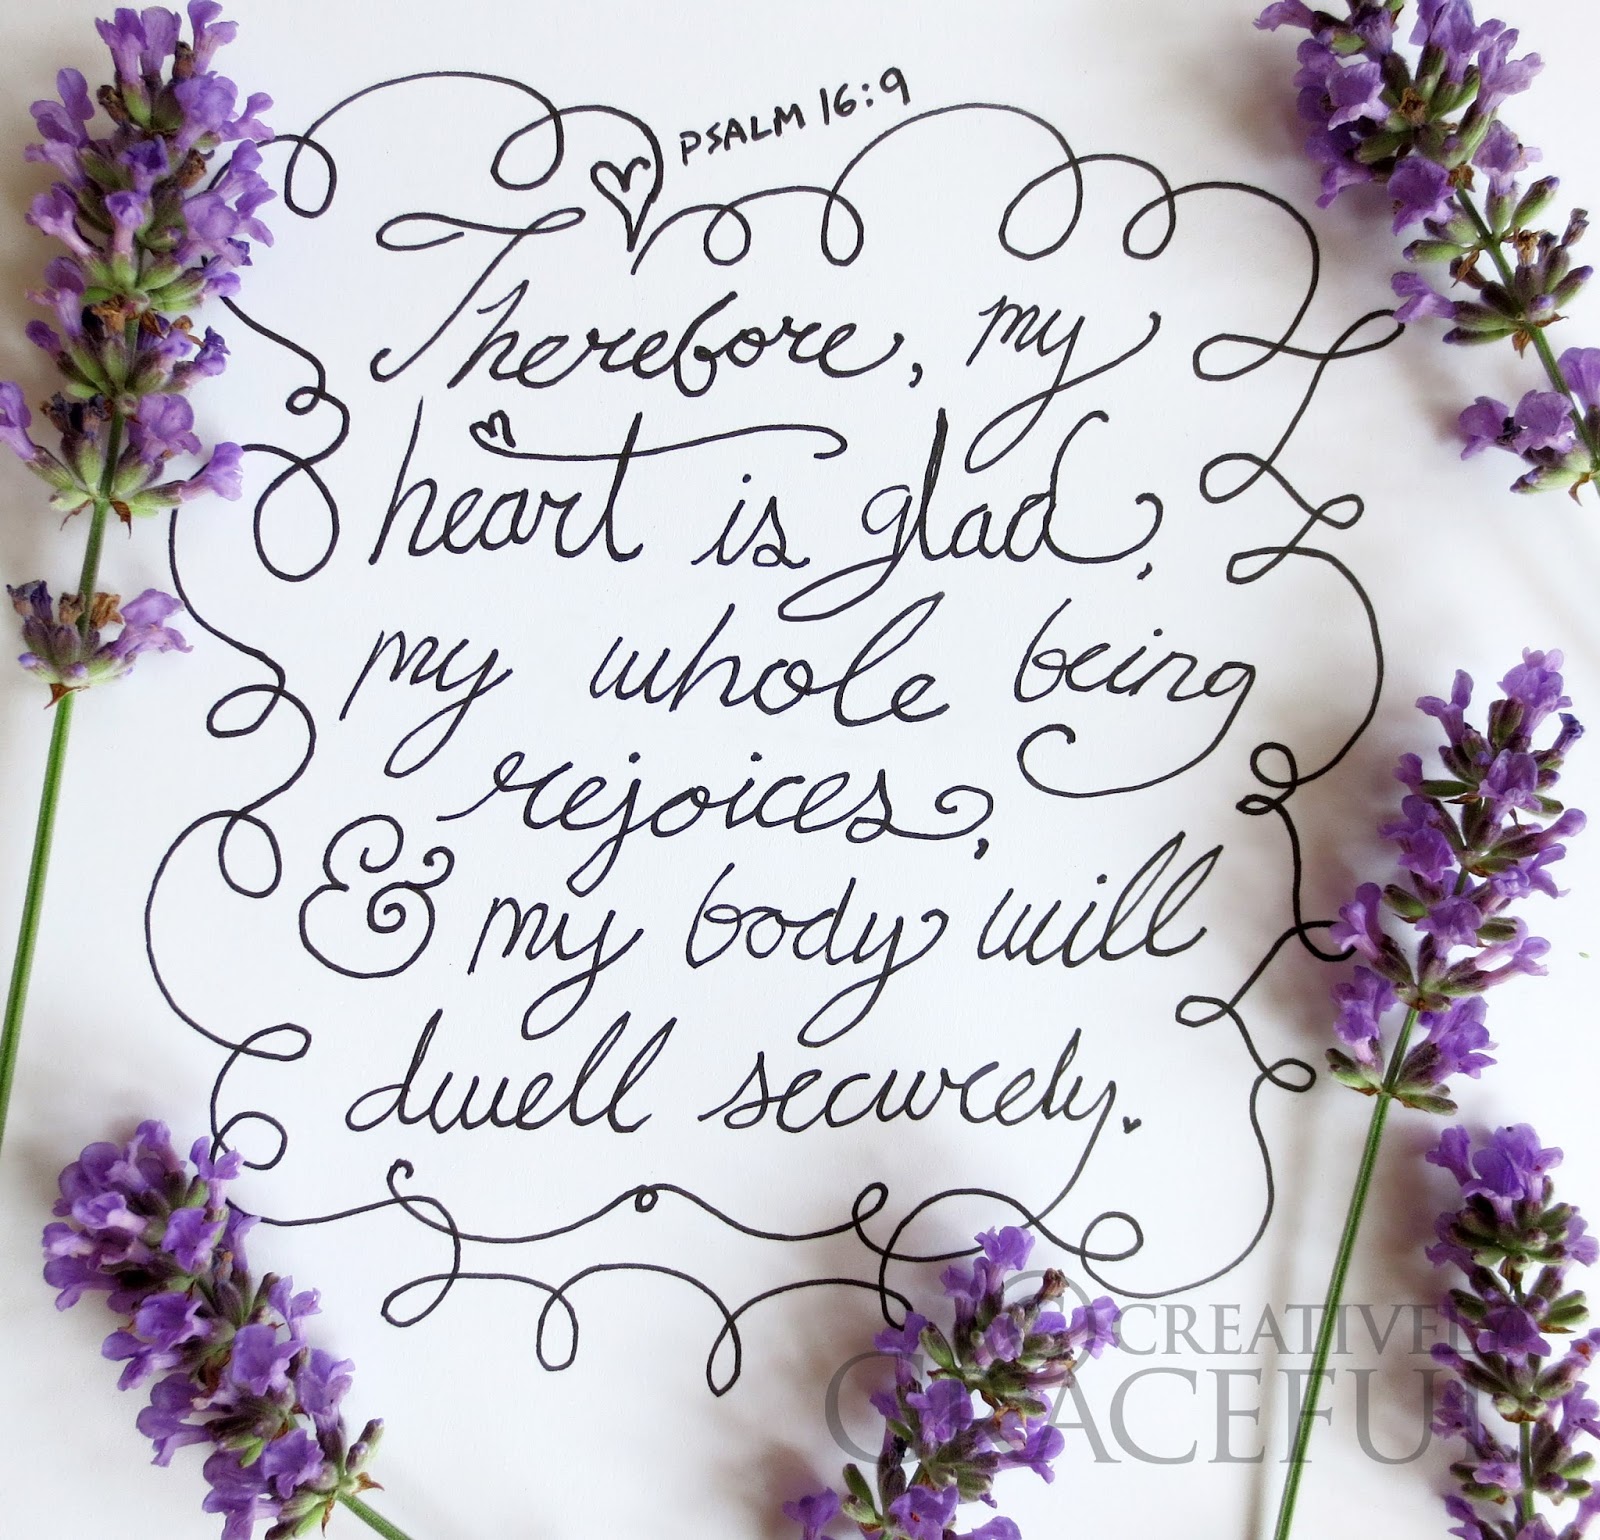 PSALM 16:9
Therefore, my
heart is glad,
my whole being
rejoices,
& my body will
dwell securely.
© CREATIVELY
GRACEFUL